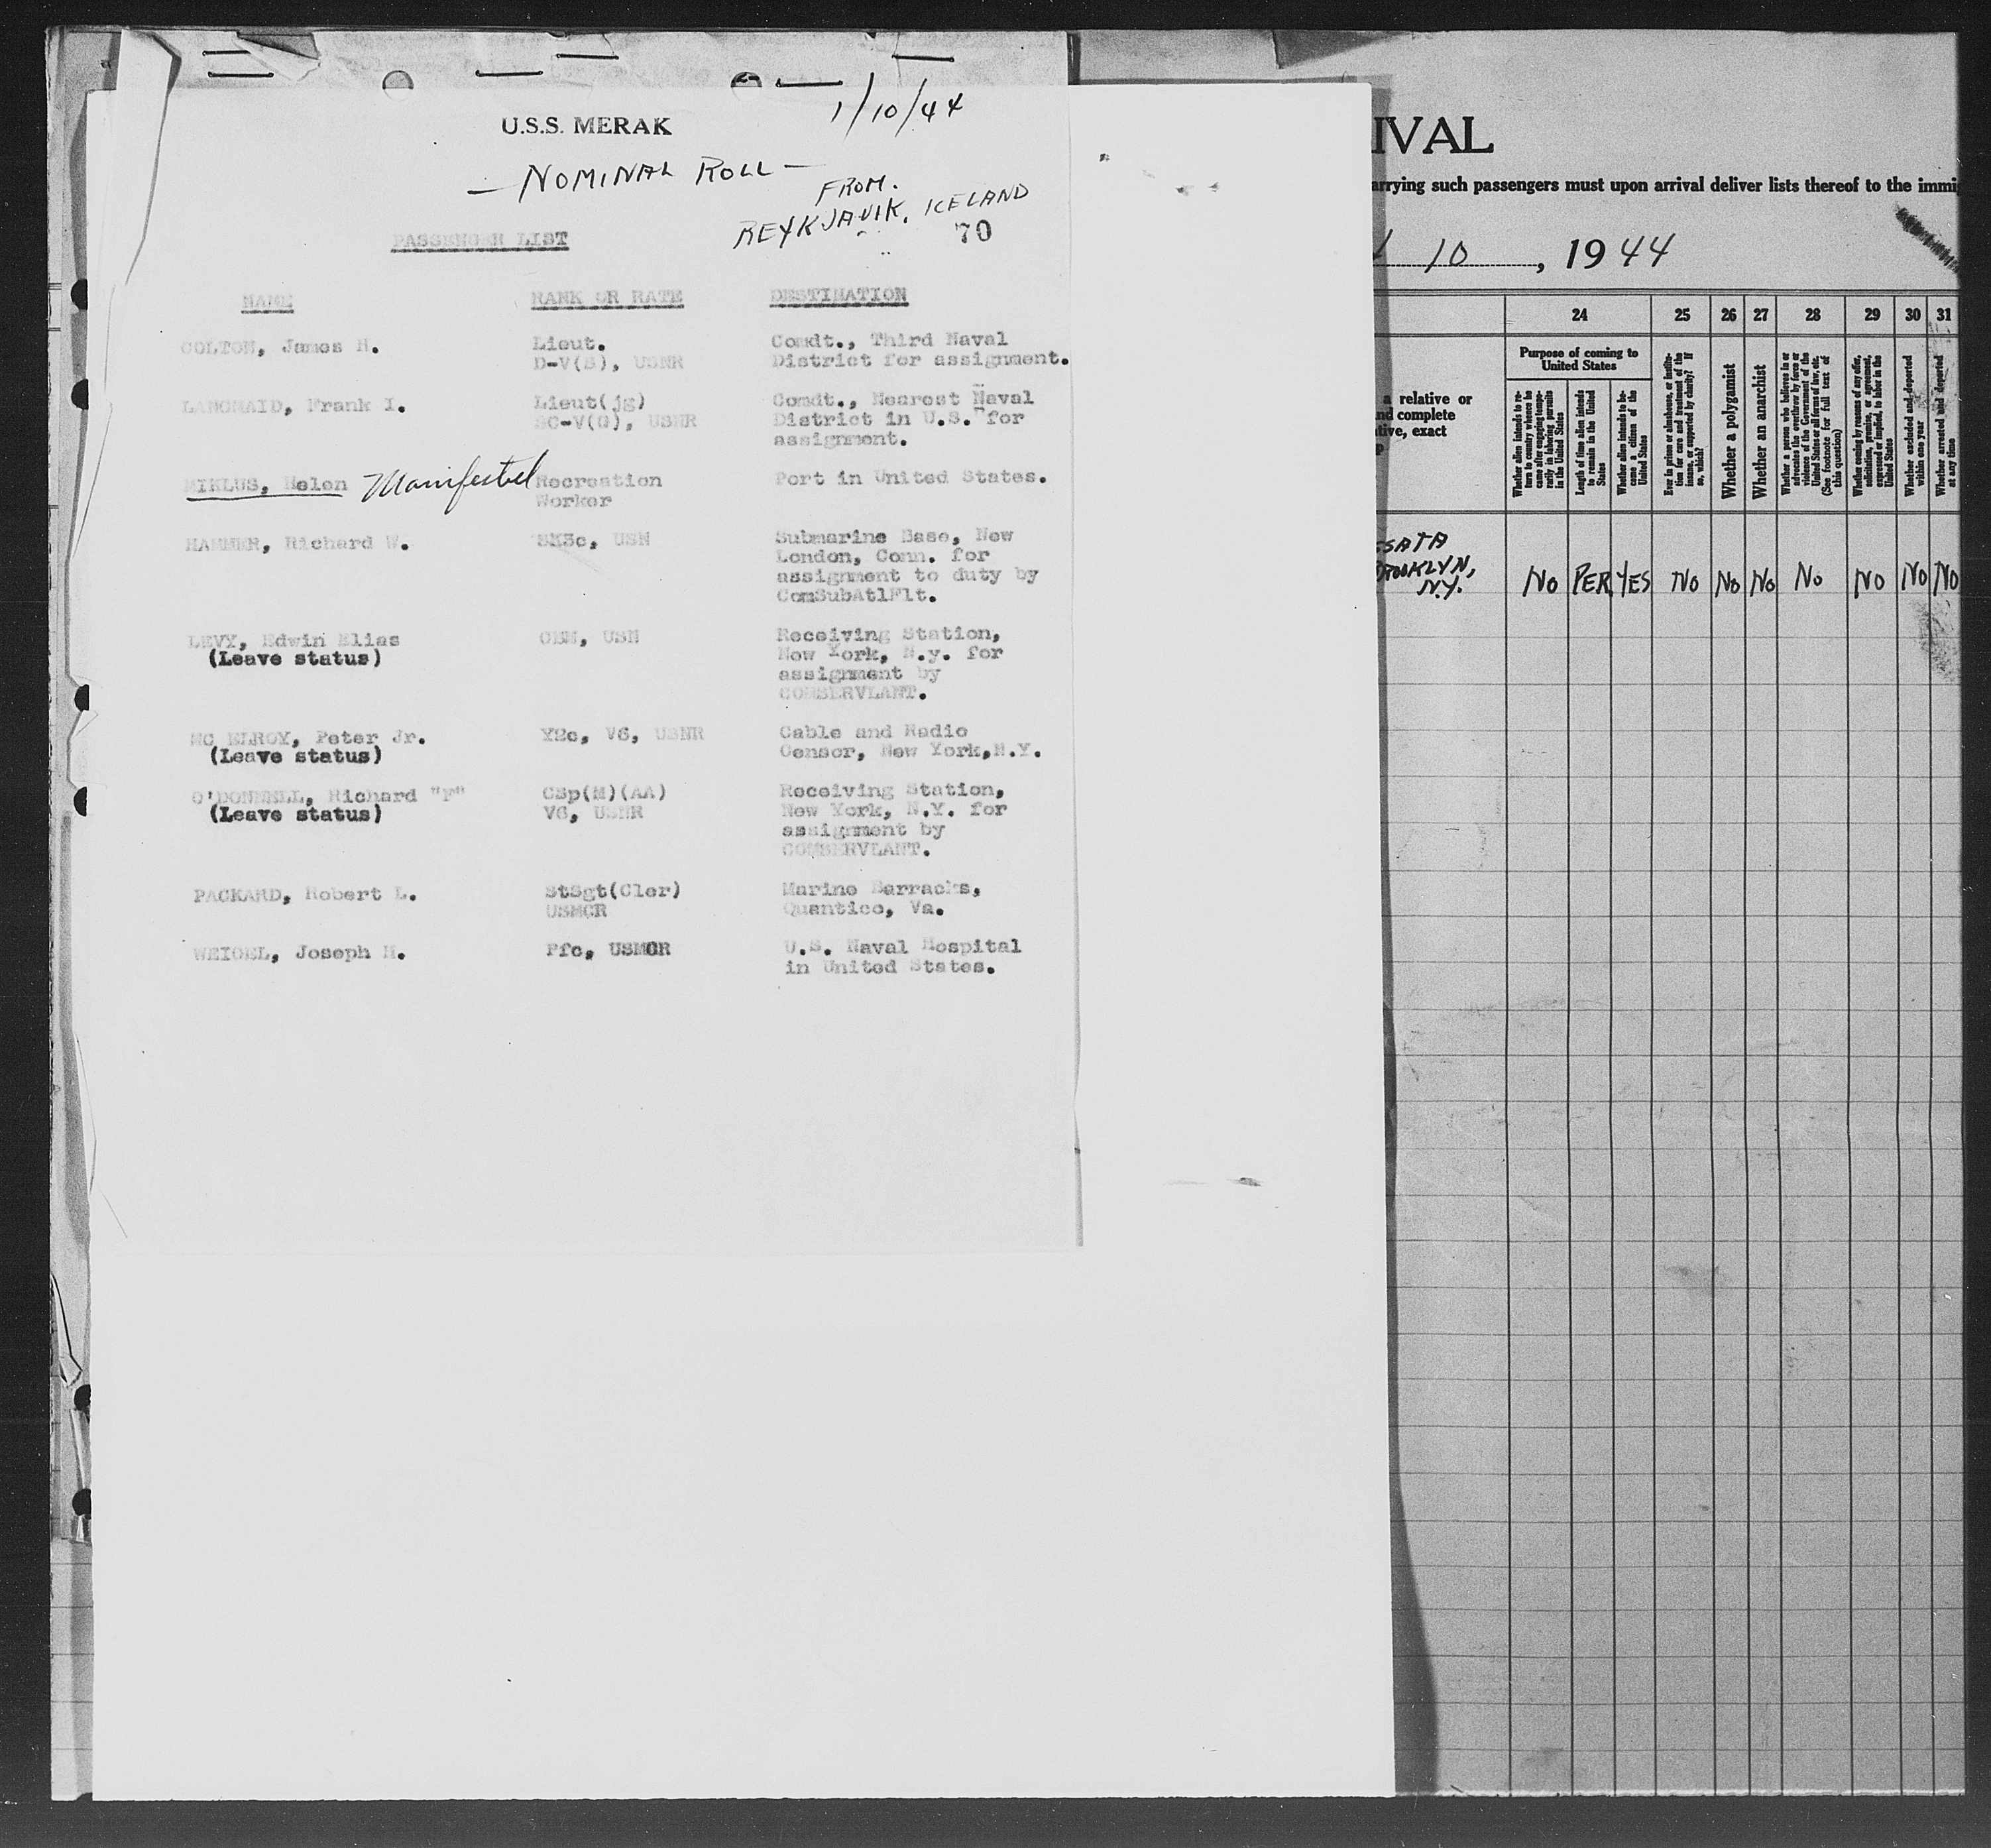 U.S.S. MERAK
1/10/44
— NOMINAL ROLL —
FROM.
REYKJAVIK, ICELAND
PASSENGER LIST
70
NAME RANK OR RATE DESTINATION
COLTON, James H. Lieut. Comdt., Third Naval
D-V(S), USNR District for assignment.
LANGMAID, Frank I. Lieut(jg) Comdt., Nearest Naval
SC-V(G), USNR District in U.S. for
assignment.
MIKLUS, Helen Manifested Recreation Port in United States.
Worker
HAMMER, Richard W. SK3c, USN Submarine Base, New
London, Conn. for
assignment to duty by
ComSubAtlFlt.
LEVY, Edwin Elias CEM, USN Receiving Station,
(Leave status) New York, N.y. for
assignment by
COMSERVLANT.
MC ELROY, Peter Jr. Y2c, V6, USNR Cable and Radio
(Leave status) Censor, New York,N.Y.
O'DONNELL, Richard "F" CSp(M)(AA) Receiving Station,
(Leave status) V6, USNR New York, N.Y. for
assignment by
COMSERVLANT.
PACKARD, Robert L. StSgt(Cler) Marine Barracks,
USMCR Quantico, Va.
WEIGEL, Joseph H. Pfc, USMCR U.S. Naval Hospital
in United States.
IVAL
arrying such passengers must upon arrival deliver lists thereof to the immi
10, 1944
24 25 26 27 28 29 30 31
Purpose of coming to
United States
a relative or
nd complete
tive, exact
p
Whether alien intends to re-
turn to country whence he
came after engaging tempo-
rarily in laboring pursuits
in the United States
Length of time alien intends
to remain in the United
States
Whether alien intends to be-
come a citizen of the
United States
Ever in prison or almshouse, or institu-
tion for care and treatment of the
insane, or supported by charity? If
so, which?
Whether a polygamist
Whether an anarchist
Whether a person who believes in or
advocates the overthrow by force or
violence of the Government of the
United States or all forms of law, etc.
(See footnote for full text of
this question)
Whether coming by reasons of any offer,
solicitation, promise, or agreement,
expressed or implied, to labor in the
United States
Whether excluded and deported
within one year
Whether arrested and deported
at any time
SATA
BROOKLYN,
N.Y.
NO PER YES NO NO NO NO NO NO NO